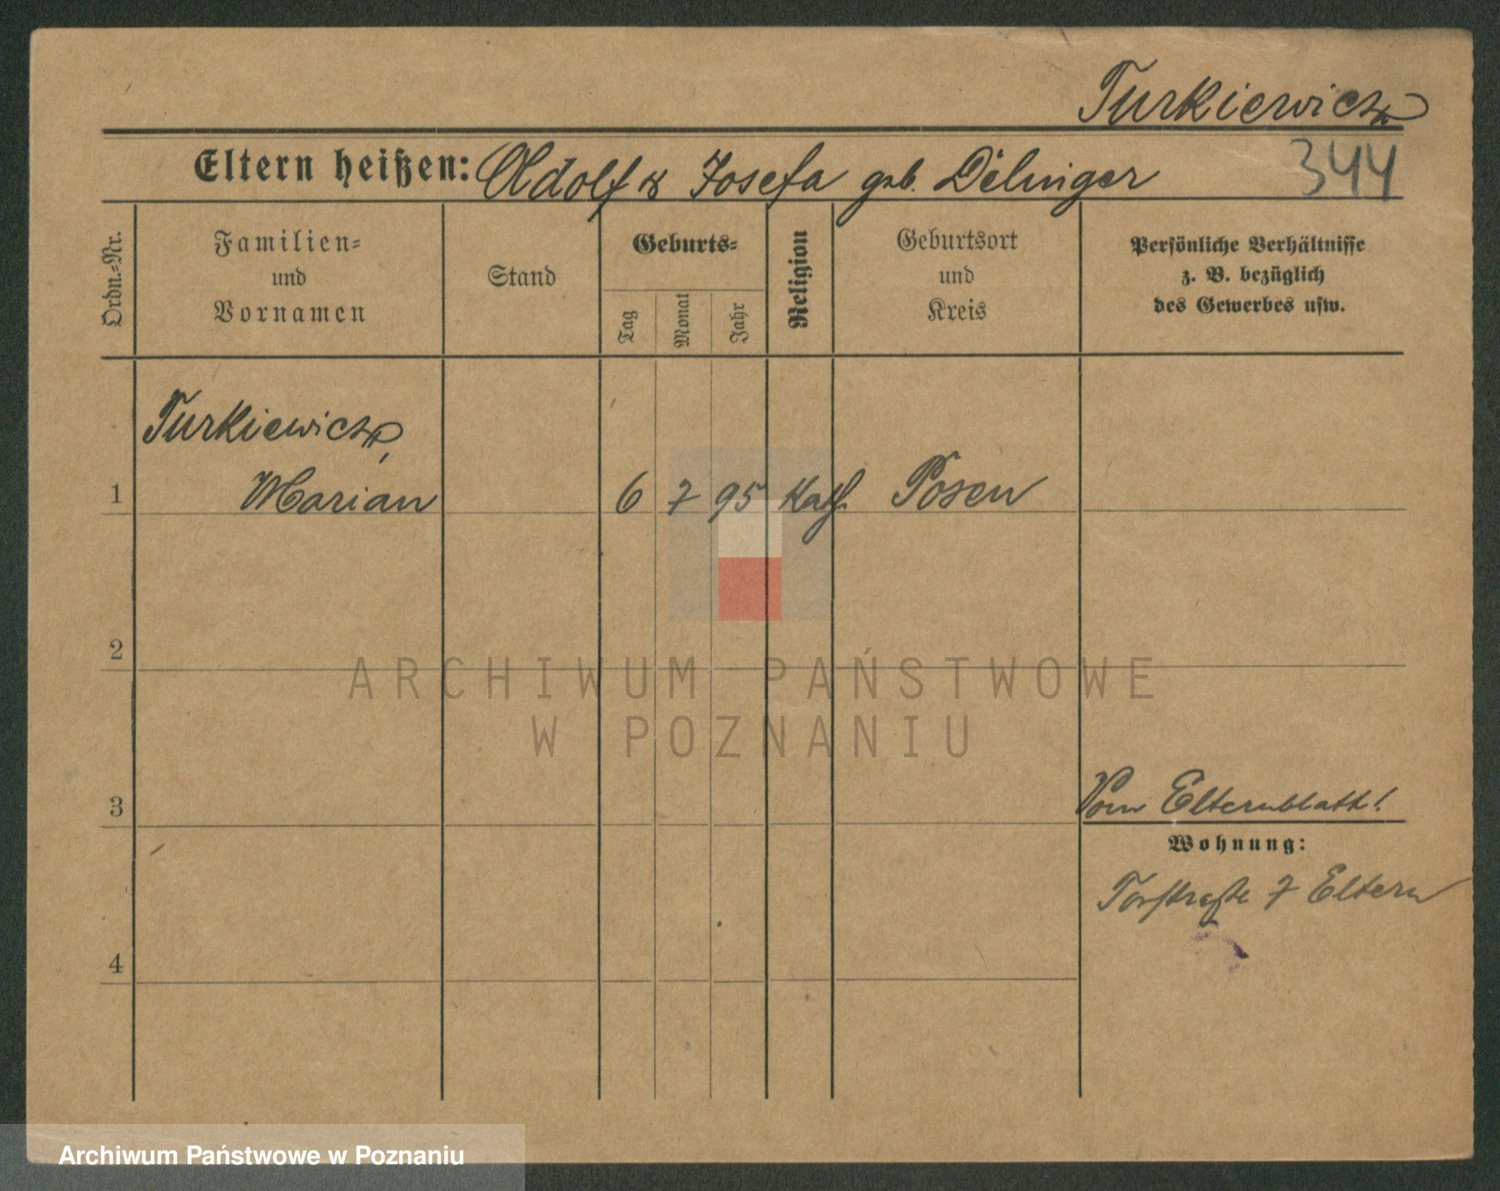 Turkiewicz
Eltern heißen: Adolf & Josefa geb. Délinger
344
Ordn.=Nr.
Familien=
und
Vornamen
Stand
Geburts=
Tag
Monat
Jahr
Religion
Geburtsort
und
Kreis
Persönliche Verhältnisse
z. B. bezüglich
des Gewerbes usw.
Turkiewicz,
1 Marian 6 7 95 Kath. Posen
2
ARCHIWUM PAŃSTWOWE
W POZNANIU
3
Vom Elternblatt!
Wohnung:
Torstraße 7 Eltern
4
Archiwum Państwowe w Poznaniu